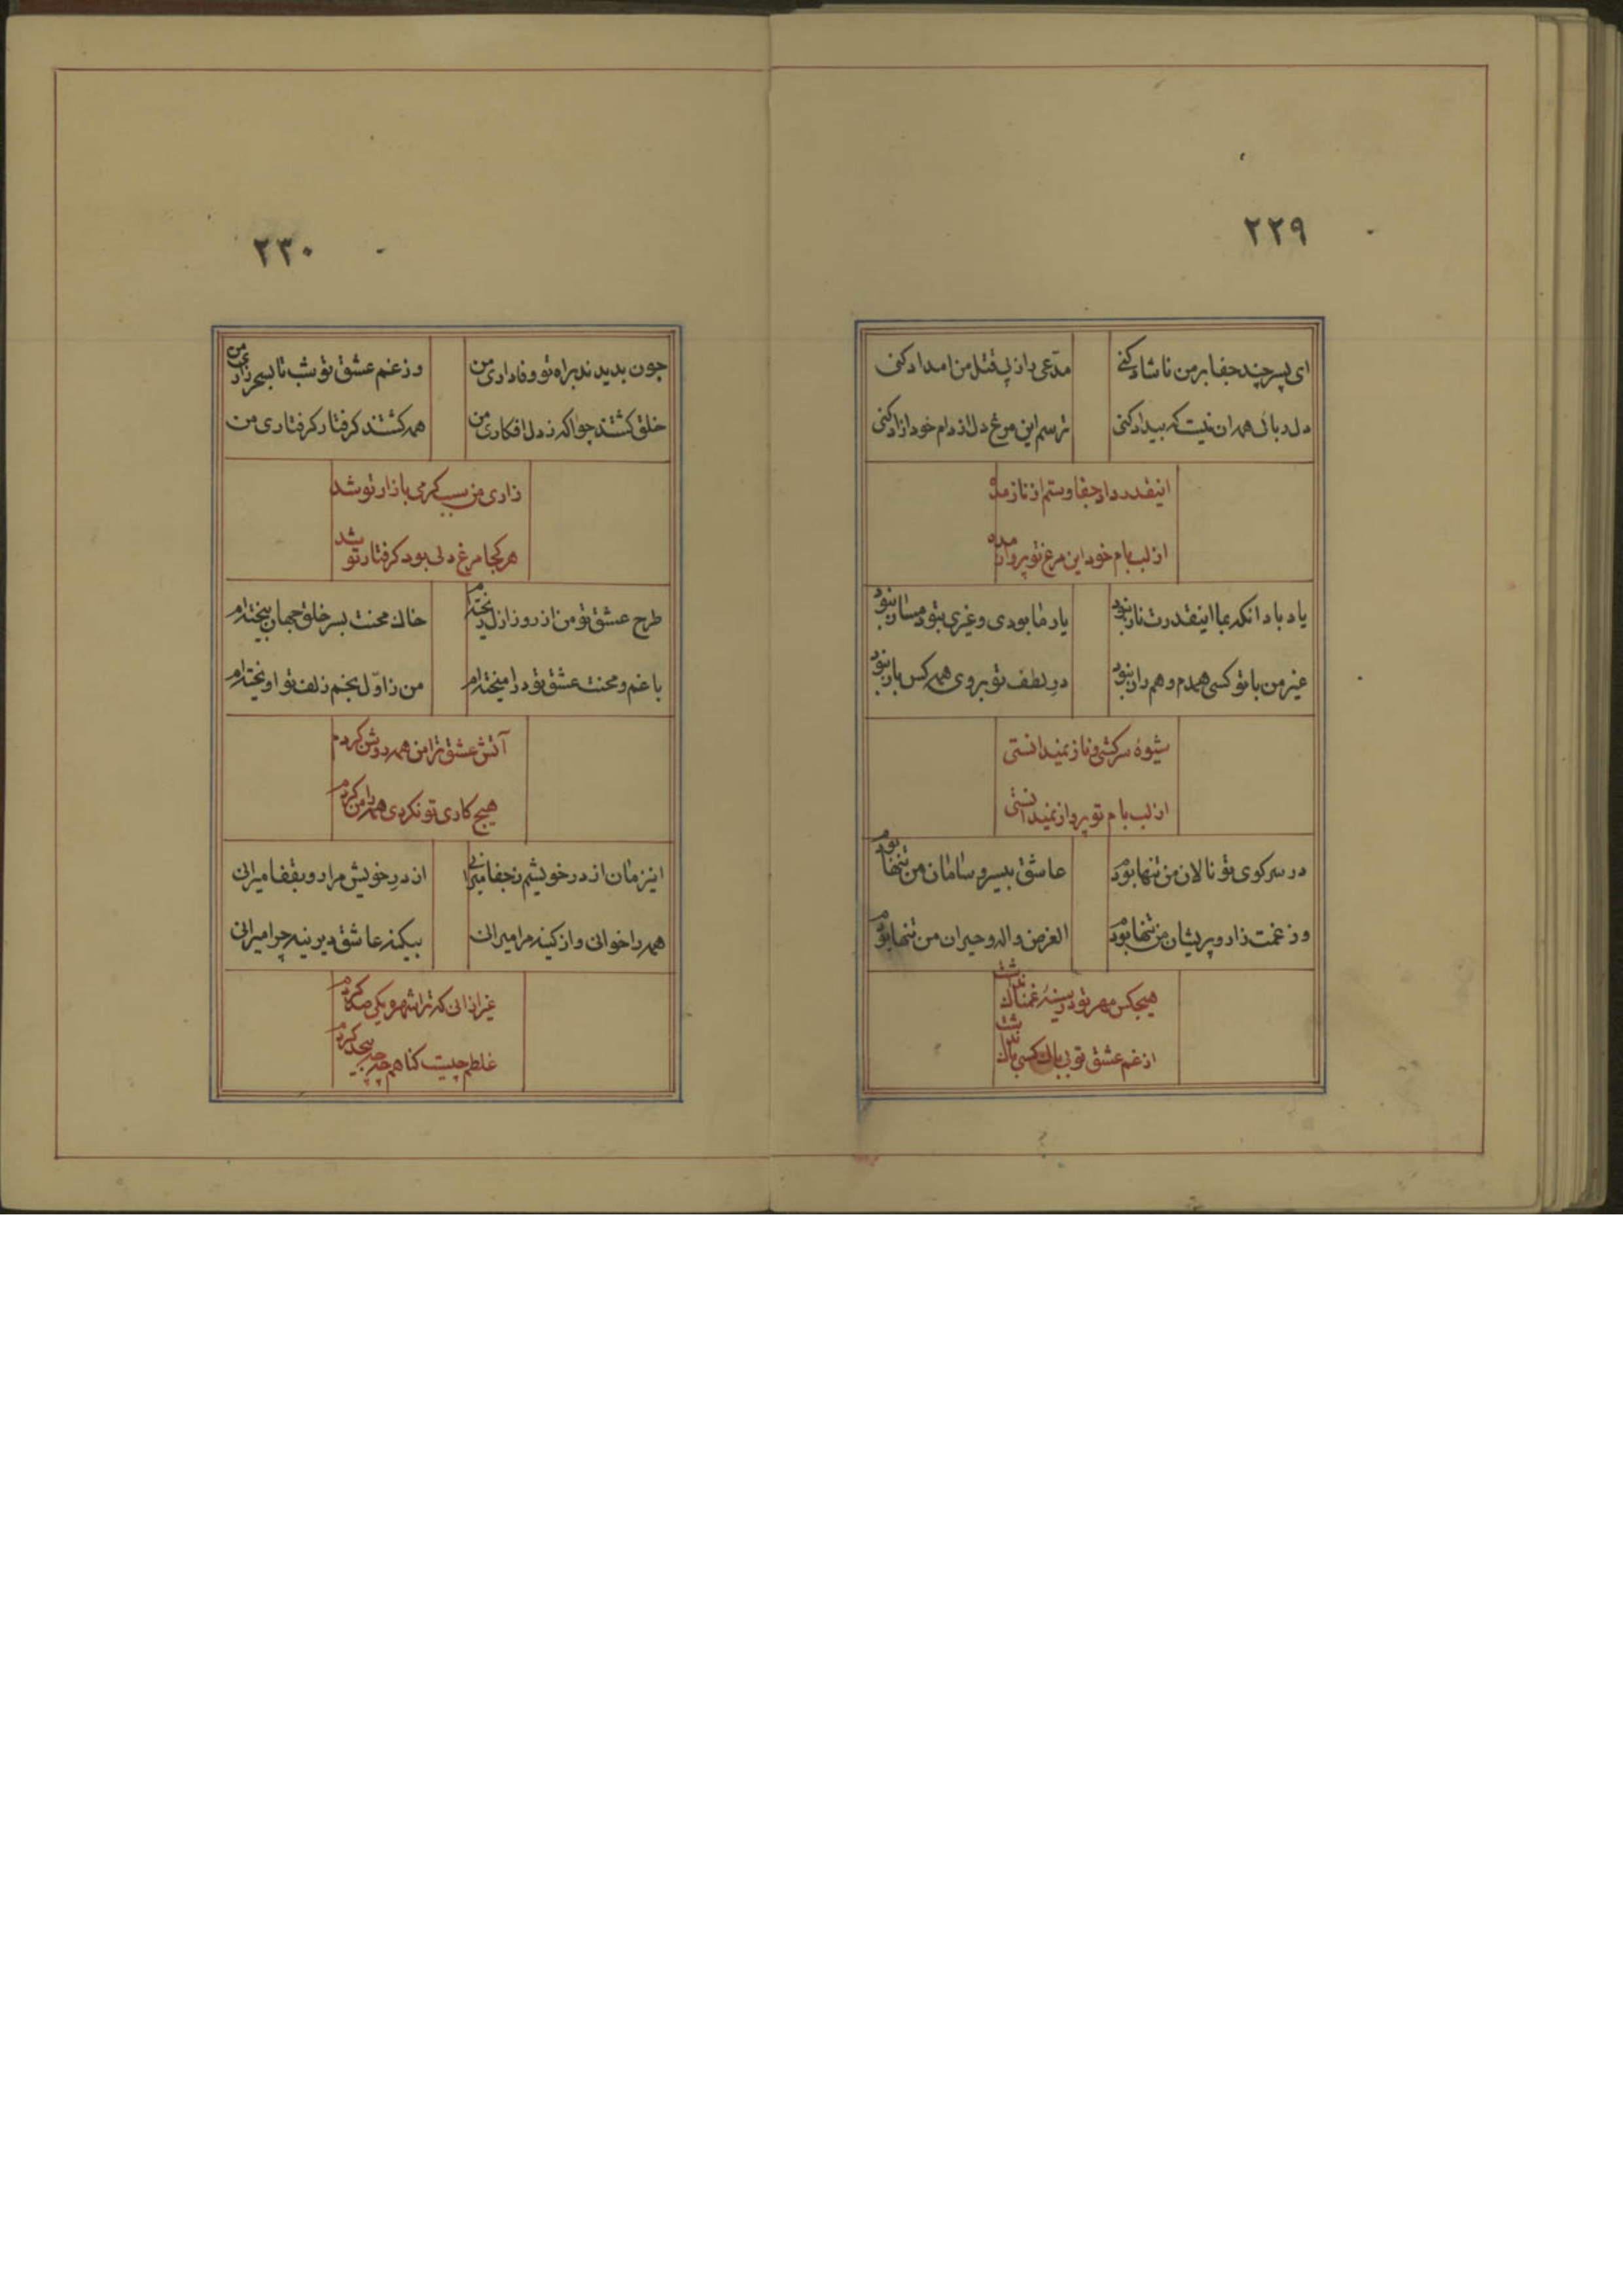 ۲۲۹
ای پسر چند جفا بر من ناشاد کنی مدّعی را ز پی قتل من امداد کنی
دلربائی همه ان نیست که بیداد کنی ترسم این مرغ دل از دام خود ازاد کنی
اینقدر داد جفا و ستم از ناز مده
از لب بام خود این مرغ تو پرواز مده
یاد باد انکه بما اینقدرت ناز نبود یار ما بودی و غیری بتو دمساز نبود
غیر من با تو کسی همدم و همراز نبود در لطف تو بروی همه کس باز نبود
شیوهٔ سرکشی و ناز نمیدانستی
از لب بام تو پرواز نمیدانستی
در سر کوی تو نالان من تنها بودم عاشق بیسر و سامان من تنها بودم
وز غمت زار و پریشان من تنها بودم الغرض واله و حیران من تنها بودم
هیچکس مهر تو در سینهٔ غمناک نداشت
از غم عشق تو بی باک کسی باک نداشت
۲۳۰
چون بدیدند براه تو وفاداری من وز غم عشق تو شب تا بسحر زاری من
خلق کشتند چو اکه ز دل افکاری من همه کشتند کرفتار کرفتاری من
زاری من سبب کرمی بازار تو شد
هر کجا مرغ دلی بود کرفتار تو شد
طرح عشق تو من از روز ازل ریخته‌ام خاک محنت بسر خلق جهان بیخته‌ام
با غم و محنت عشق تو درامیخته‌ام من ز اوّل بخم زلف تو اویخته‌ام
آتش عشق ترا من همه روشن کردم
هیچ کاری تو نکردی همه را من کردم
اینزمان از در خویشم ز جفا میرانی از در خویش مرا رو بقفا میرانی
همه را خوانی و از کینه مرا میرانی بیکنه عاشق دیرینه چرا میرانی
غیر ازانی که ترا شهره یکی صد کردم
غلطم چیست کناهم چه بد کردم